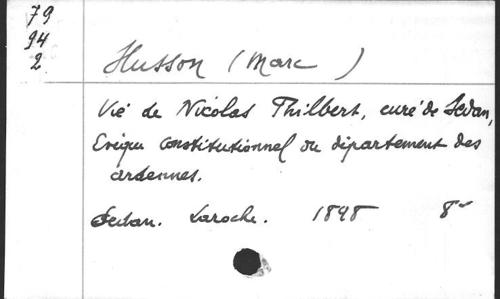 79
94
2
Husson (Marc)
Vie de Nicolas Philbert, curé de Sedan,
Evêque constitutionnel du département des
ardennes.
Sedan. Laroche. 1898 8º